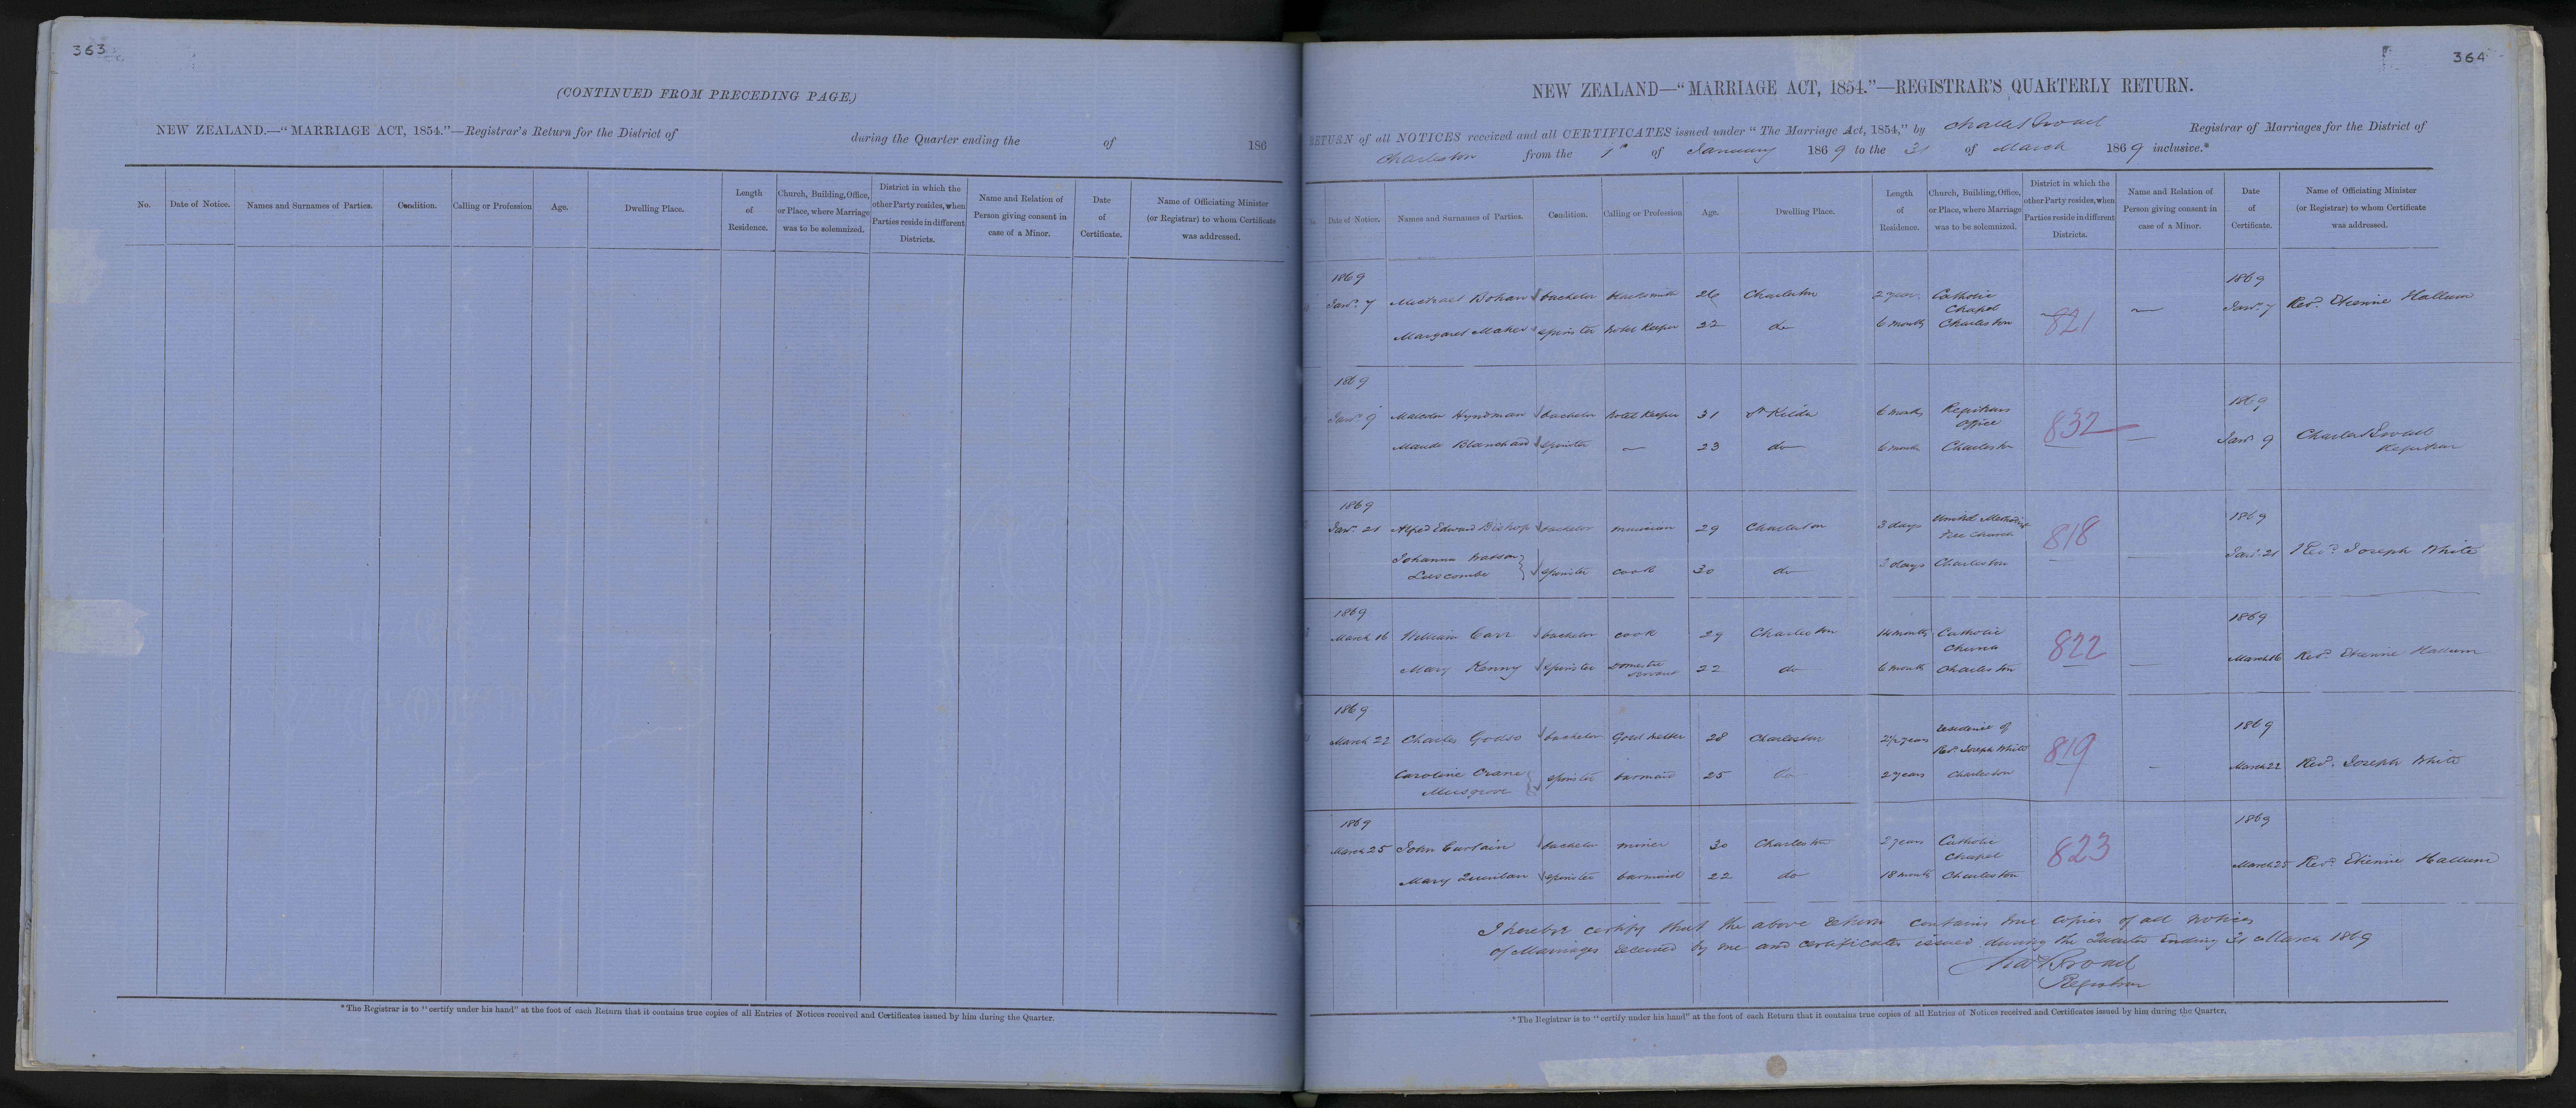 363
(CONTINUED FROM PRECEDING PAGE.)
NEW ZEALAND.—"MARRIAGE ACT, 1854."—Registrar's Return for the District of during the Quarter ending the of 186
No. Date of Notice. Names and Surnames of Parties. Condition. Calling or Profession Age. Dwelling Place. Length of Residence. Church, Building, Office, or Place, where Marriage was to be solemnized. District in which the other Party resides, when Parties reside in different Districts. Name and Relation of Person giving consent in case of a Minor. Date of Certificate. Name of Officiating Minister (or Registrar) to whom Certificate was addressed.
*The Registrar is to "certify under his hand" at the foot of each Return that it contains true copies of all Entries of Notices received and Certificates issued by him during the Quarter.
364
NEW ZEALAND—"MARRIAGE ACT, 1854."—REGISTRAR'S QUARTERLY RETURN.
RETURN of all NOTICES received and all CERTIFICATES issued under "The Marriage Act, 1854," by Charles Broad Registrar of Marriages for the District of
Charleston from the 1st of January 1869 to the 31 of March 1869 inclusive.*
Date of Notice. Names and Surnames of Parties. Condition. Calling or Profession Age. Dwelling Place. Length of Residence. Church, Building, Office, or Place, where Marriage was to be solemnized. District in which the other Party resides, when Parties reside in different Districts. Name and Relation of Person giving consent in case of a Minor. Date of Certificate. Name of Officiating Minister (or Registrar) to whom Certificate was addressed.
1869 1869
Jany. 7 Michael Bohan bachelor blacksmith 26 Charleston 2 years Catholic Chapel 821 — Jany. 7 Revd. Etienne Hallum
Margaret Maher spinster hotel keeper 22 do 6 months Charleston
1869 1869
Jany. 9 Malcolm Hyndman bachelor hotel keeper 31 St Kilda 6 months Registrars Office 832 — Jany. 9 Charles Broad Registrar
Maude Blanchard spinster — 23 do 6 months Charleston
1869 1869
Jany. 21 Alfred Edward Bishop bachelor musician 29 Charleston 3 days United Methodist Free Church 818 — Jany. 21 Revd. Joseph White
Johanna Watson Luscombe spinster cook 30 do 3 days Charleston
1869 1869
March 16 William Carr bachelor cook 29 Charleston 14 months Catholic Church 822 — March 16 Revd. Etienne Hallum
Mary Kenny spinster domestic servant 22 do 6 months Charleston
1869 1869
March 22 Charles Godso bachelor Gold melter 28 Charleston 2½ years residence of Revd. Joseph White 819 — March 22 Revd. Joseph White
Caroline Crane Musgrove spinster barmaid 25 do 2 years Charleston
1869 1869
March 25 John Curtain bachelor miner 30 Charleston 2 years Catholic Chapel 823 March 25 Revd. Etienne Hallum
Mary Quinlan spinster barmaid 22 do 18 months Charleston
I hereby certify that the above return contains true copies of all notices
of Marriages received by me and certificates issued during the Quarter Ending 31 March 1869
Chas Broad
Registrar
*The Registrar is to "certify under his hand" at the foot of each Return that it contains true copies of all Entries of Notices received and Certificates issued by him during the Quarter.